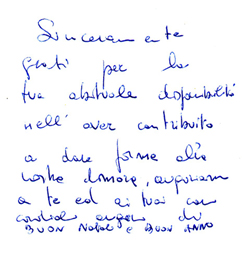 Sinceramente
grati per la
tua abituale disponibilità
nell' aver contribuito
a dare forma alla
nostra dimora, auguriam
a te ed ai tuoi cari
cordiali auguri di
BUON NATALE E BUON ANNO